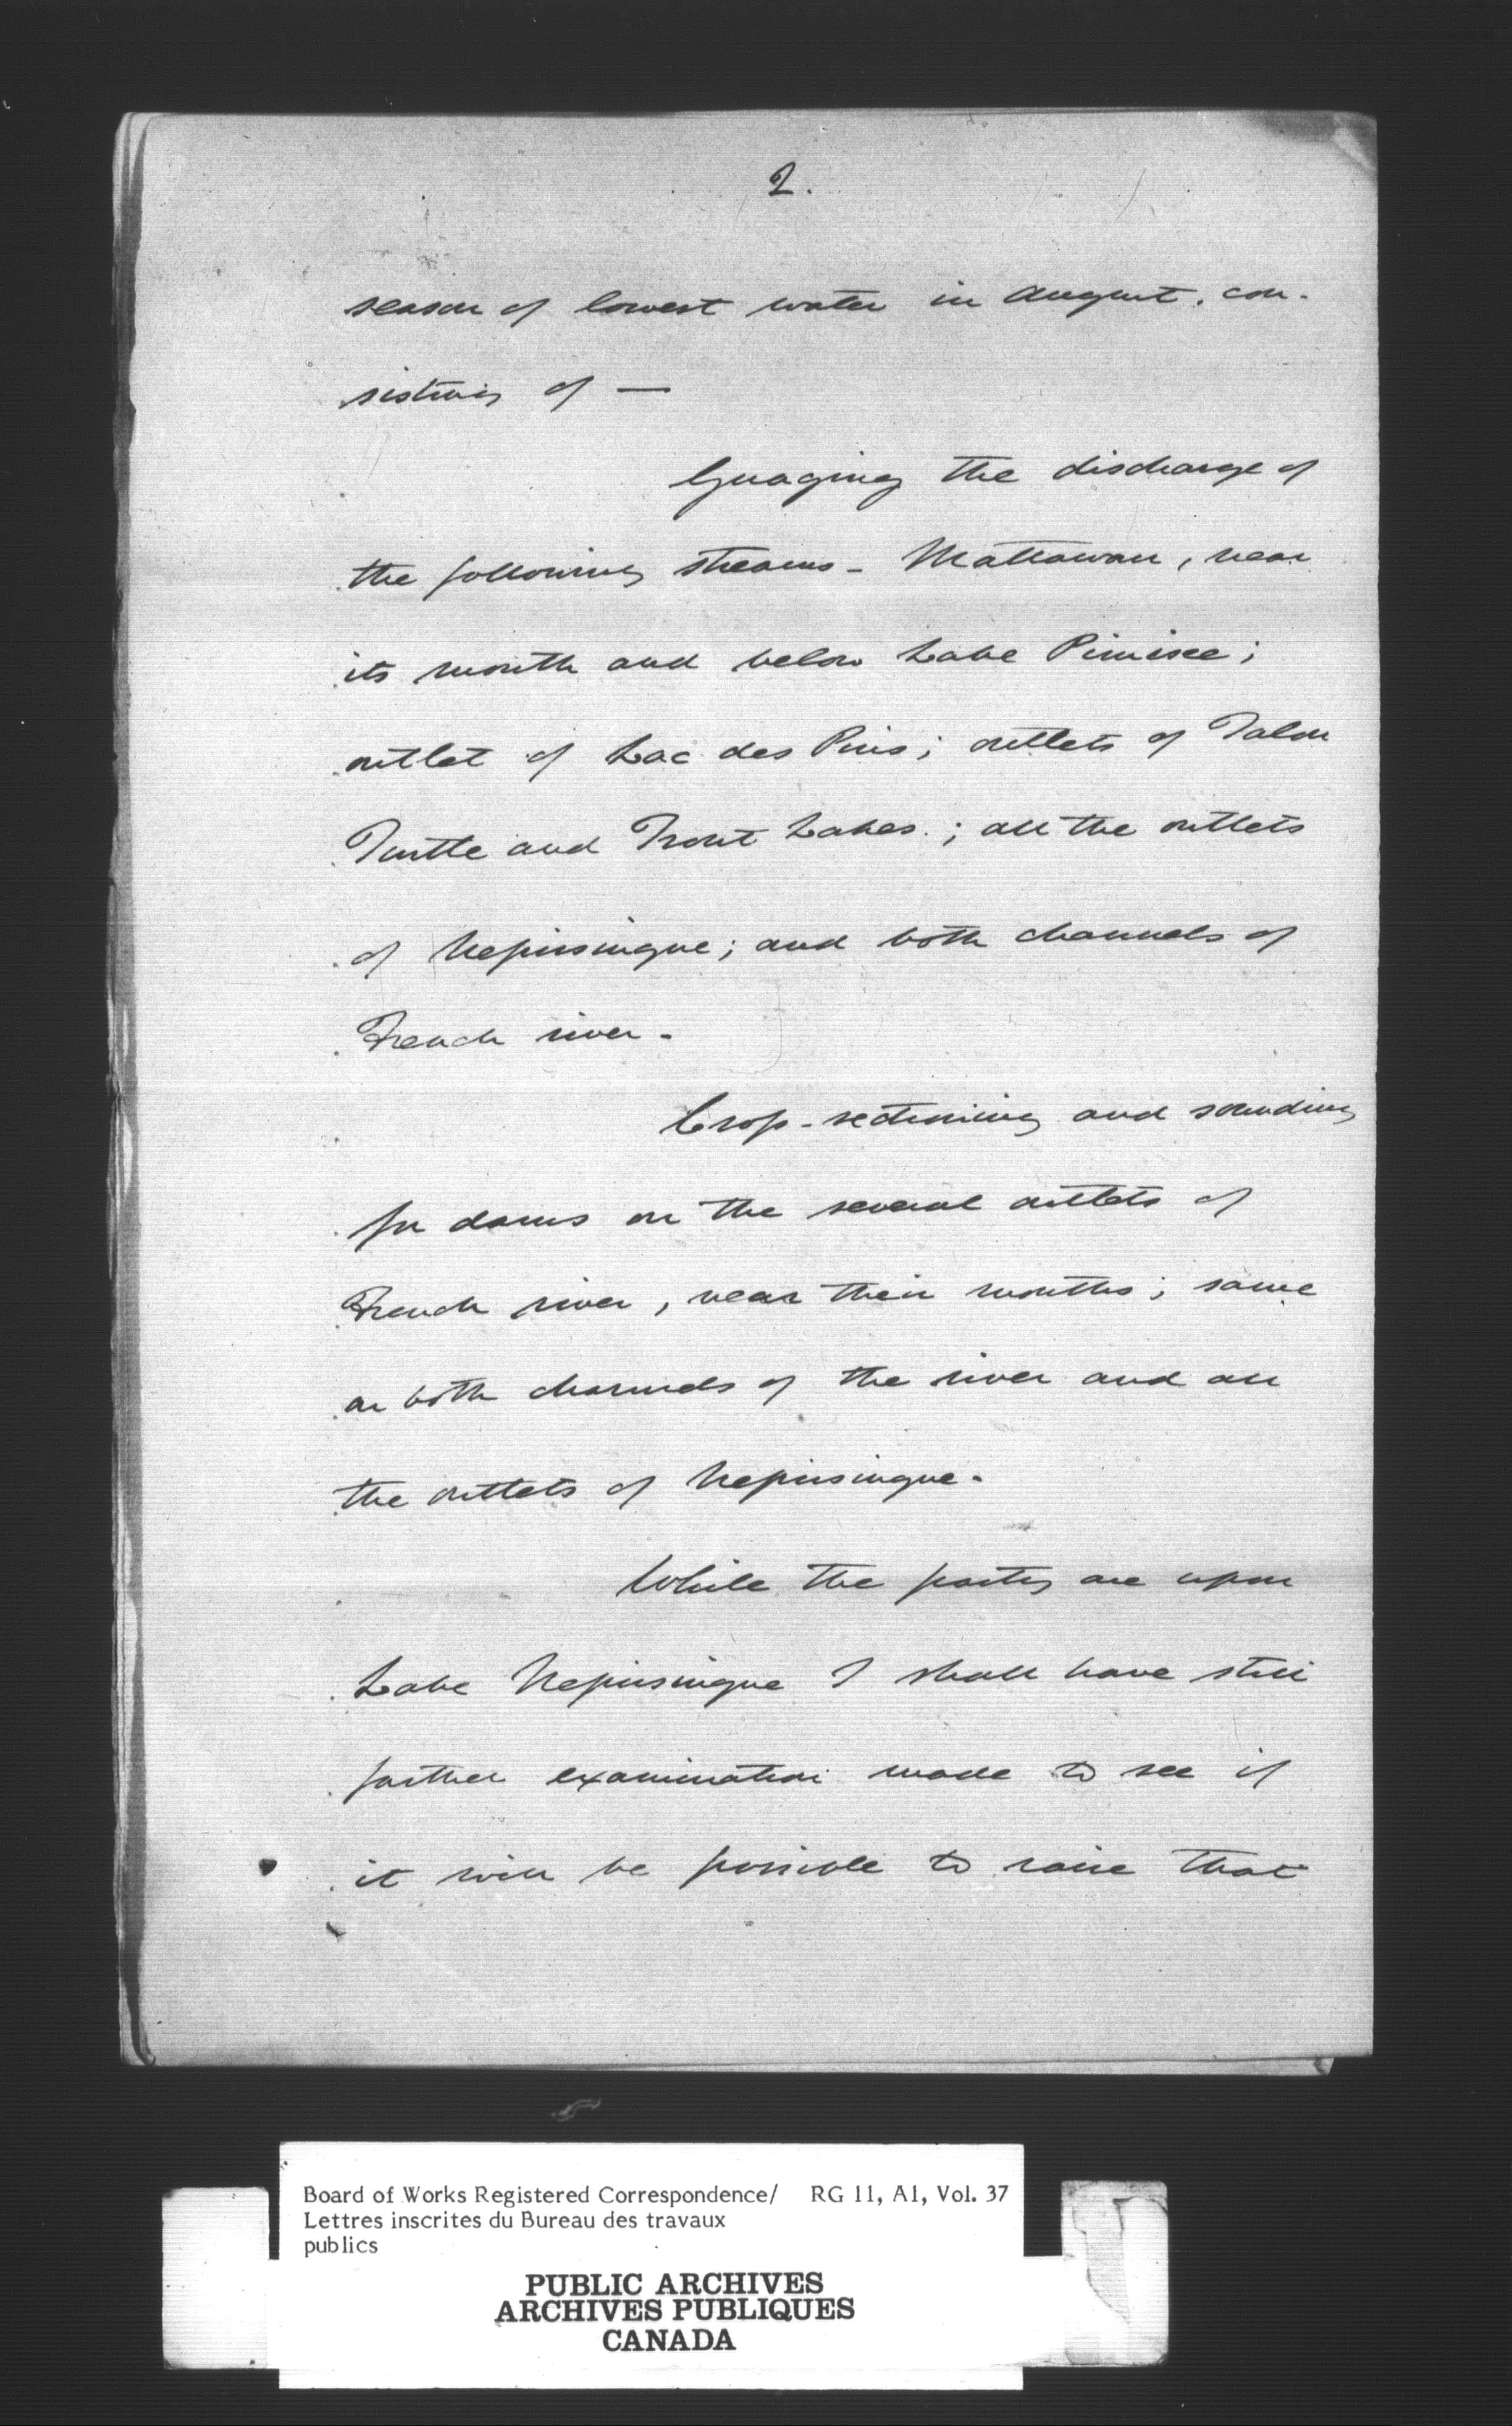 2.
season of lowest water in August, con-
sisting of —
Guaging the discharge of
the following streams - Mattawan, near
its mouth and below Lake Pimisee;
outlet of Lac des Pins; outlets of Talon
Turtle and Trout Lakes.; all the outlets
of Nepissingue; and both channels of
French river -
Cross-sectioning and sounding
for dams on the several outlets of
French river, near their mouths; same
on both channels of the river and all
the outlets of Nepissingue -
While the party are upon
Lake Nepissingue I shall have still
further examination made to see if
it will be possible to raise that
Board of Works Registered Correspondence/ RG 11, A1, Vol. 37
Lettres inscrites du Bureau des travaux
publics
PUBLIC ARCHIVES
ARCHIVES PUBLIQUES
CANADA